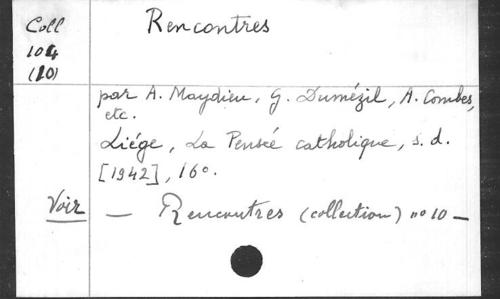 Coll
104
(10)
Rencontres
par A. Maydieu, G. Dumézil, A. Combes,
etc.
Liége, La Pensée catholique, s. d.
[1942], 16°.
Voir — Rencontres (collection) n° 10 —